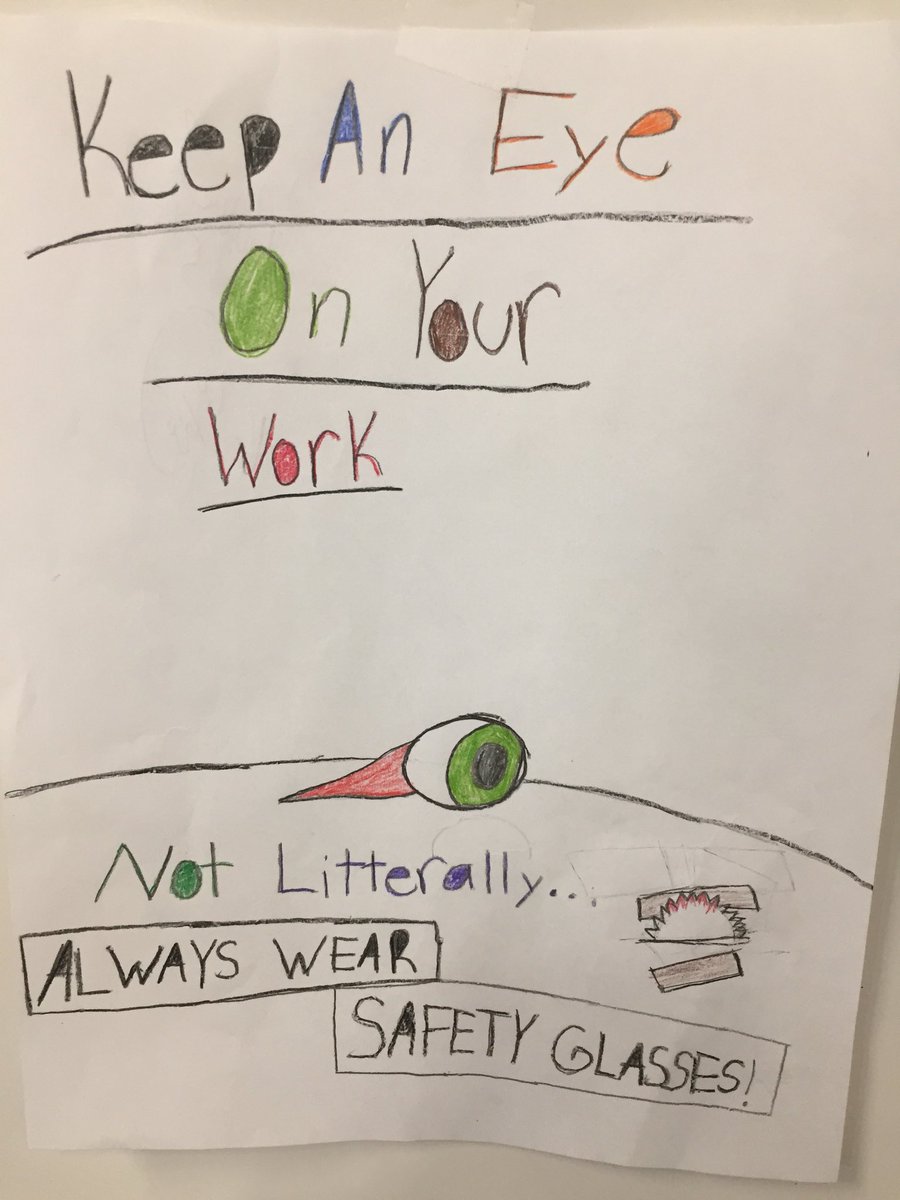 Keep An Eye
On Your
Work
Not Litterally...
ALWAYS WEAR
SAFETY GLASSES!